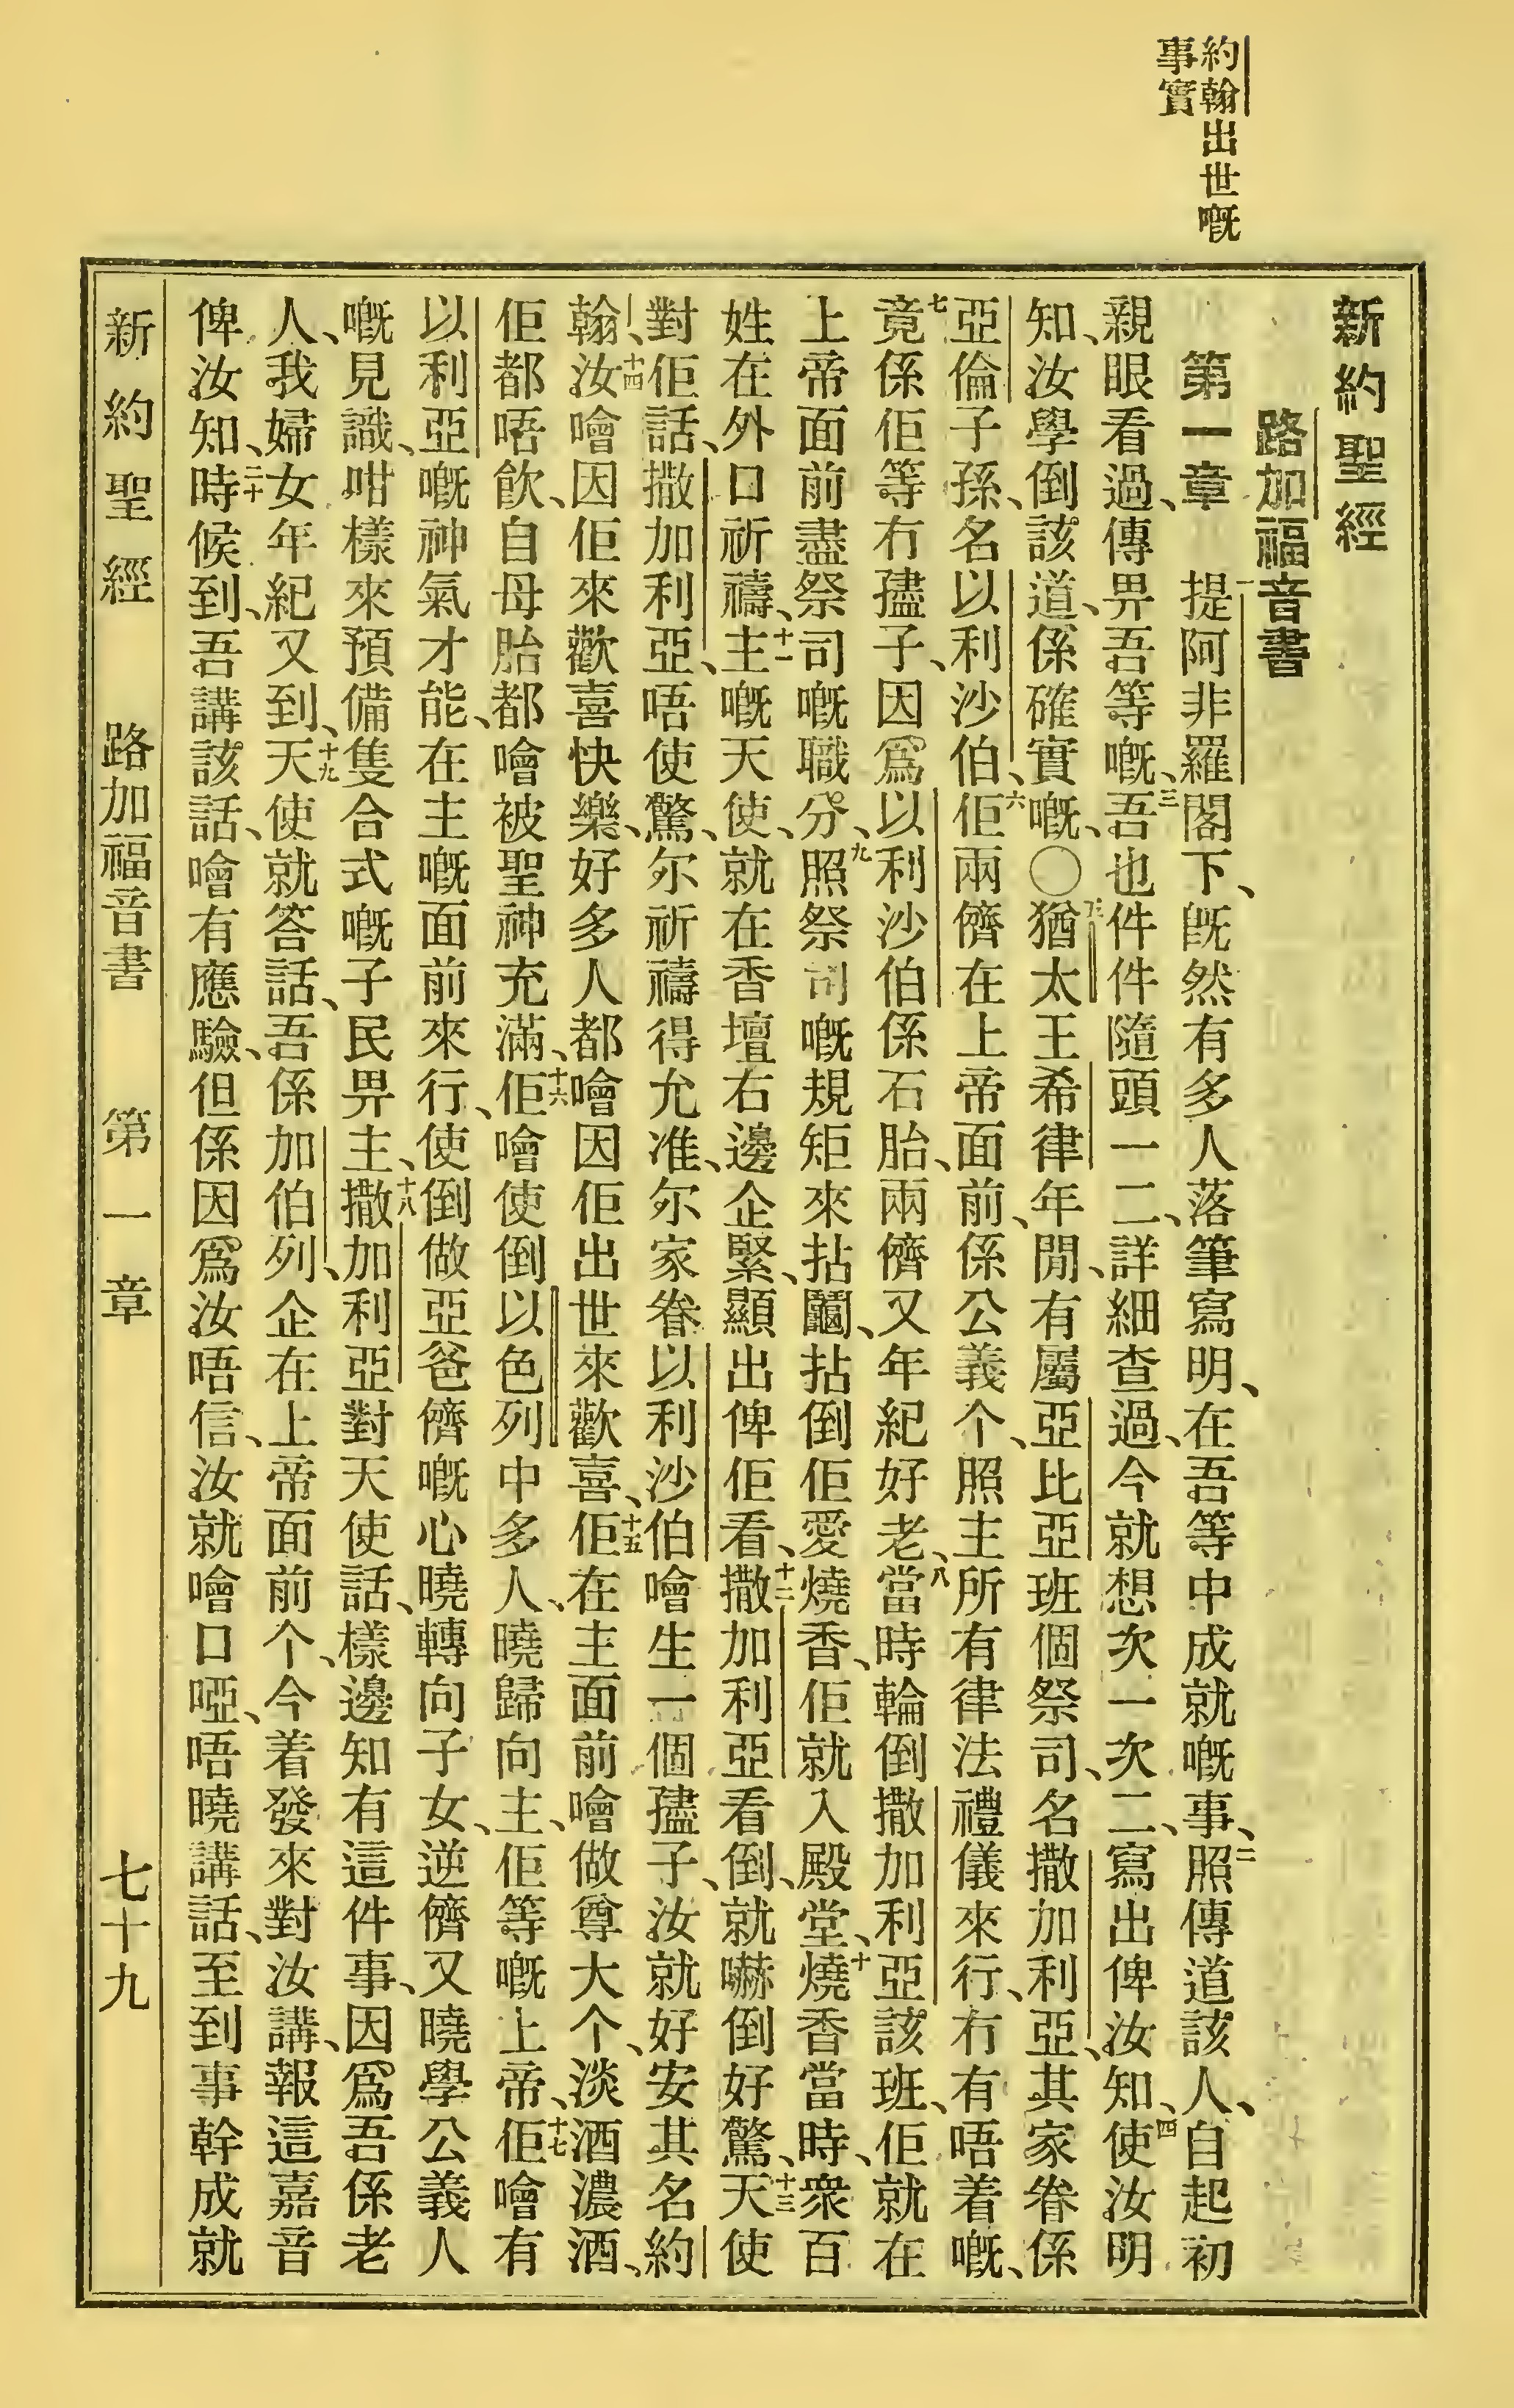 約翰出世嘅
事實
新約聖經
路加福音書
第一章 一提阿非羅閣下、旣然有多人落筆寫明、在吾等中成就嘅事、二照傳道該人、自起初
親眼看過、傳畀吾等嘅、三吾也件件隨頭一二、詳細查過、今就想次一次二、寫出俾汝知、四使汝明
知、汝學倒該道、係確實嘅、〇五猶太王希律年間、有屬亞比亞班個祭司、名撒加利亞、其家眷係
亞倫子孫、名以利沙伯、六佢兩儕在上帝面前、係公義个、照主所有律法禮儀來行、冇有唔着嘅、
七竟係佢等冇孻子、因爲以利沙伯係石胎、兩儕又年紀好老、八當時輪倒撒加利亞該班、佢就在
上帝面前盡祭司嘅職分、九照祭司嘅規矩來拈鬮、拈倒佢愛燒香、佢就入殿堂、十燒香當時、衆百
姓在外口祈禱、十一主嘅天使、就在香壇右邊企緊、顯出俾佢看、十二撒加利亞看倒、就嚇倒好驚、十三天使
對佢話、撒加利亞、唔使驚、尔祈禱得允准、尔家眷以利沙伯噲生一個孻子、汝就好安其名約
翰、十四汝噲因佢來歡喜快樂、好多人都噲因佢出世來歡喜、十五佢在主面前噲做尊大个、淡酒濃酒、
佢都唔飮、自母胎都噲被聖神充滿、十六佢噲使倒以色列中多人、曉歸向主、佢等嘅上帝、十七佢噲有
以利亞嘅神氣才能、在主嘅面前來行、使倒做亞爸儕嘅心曉轉向子女、逆儕又曉學公義人
嘅見識、咁樣來預備隻合式嘅子民畀主、十八撒加利亞對天使話、樣邊知有這件事、因爲吾係老
人、我婦女年紀又到、十九天使就答話、吾係加伯列、企在上帝面前个、今着發來對汝講、報這嘉音
俾汝知、二十時候到、吾講該話、噲有應驗、但係因爲汝唔信、汝就噲口啞、唔曉講話、至到事幹成就
新約聖經 路加福音書 第一章 七十九